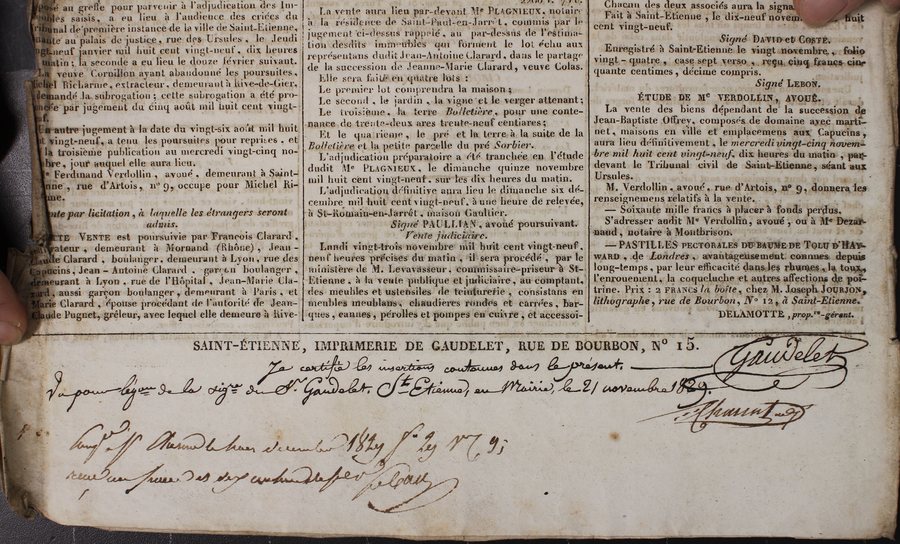 posé au greffe pour parvenir à l'adjudication des Im-
meubles saisis, a eu lieu à l'audience des criées du
tribunal de première instance de la ville de Saint-Etienne,
séante au palais de justice, rue des Ursules, le Jeudi
vingt-neuf janvier mil huit cent vingt-neuf, dix heures
du matin ; la seconde a eu lieu le douze février suivant.
La veuve Cornillon ayant abandonné les poursuites,
Michel Richarme, extracteur, demeurant à Rive-de-Gier,
demandé la subrogation ; cette subrogation a été pro-
noncée par jugement du cinq août mil huit cent vingt-
neuf.
Un autre jugement à la date du vingt-six août mil huit
cent vingt-neuf, a tenu les poursuites pour reprises, et
la troisième publication au mercredi vingt-cinq no-
vembre, jour auquel elle aura lieu.
Me Ferdinand Verdollin, avoué, demeurant à Saint-
Etienne, rue d'Artois, n° 9, occupe pour Michel Ri-
charme.
Vente par licitation, à laquelle les étrangers seront
admis.
CETTE VENTE est poursuivie par François Clarard,
cultivateur, demeurant à Mornand (Rhône), Jean-
Claude Clarard, boulanger, demeurant à Lyon, rue des
Capucins, Jean-Antoine Clarard, garçon boulanger,
demeurant à Lyon, rue de l'Hôpital, Jean-Marie Cla-
rard, aussi garçon boulanger, demeurant à Paris, et
Marie Clarard, épouse procédant de l'autorité de Jean-
Claude Pugnet, grêleur, avec lequel elle demeure à Rive-
La vente aura lieu par-devant Me PLAGNIEUX, notaire
à la résidence de Saint-Paul-en-Jarrêt, commis par le
jugement ci-dessus rappelé, au par-dessus de l'estima-
tion desdits immeubles qui forment le lot échu aux
représentans dudit Jean-Antoine Clarard, dans le partage
de la succession de Jeanne-Marie Clarard, veuve Colas.
Elle sera faite en quatre lots :
Le premier lot comprendra la maison ;
Le second, le jardin, la vigne et le verger attenant ;
Le troisième, la terre Bolletière, pour une conte-
nance de trente-deux ares trente-neuf centiares ;
Et le quatrième, le pré et la terre à la suite de la
Bolletière et la petite parcelle du pré Sorbier.
L'adjudication préparatoire a été tranchée en l'étude
dudit Me PLAGNIEUX, le dimanche quinze novembre
mil huit cent vingt-neuf, sur les dix heures du matin.
L'adjudication définitive aura lieu le dimanche six dé-
cembre mil huit cent vingt-neuf, à une heure de relevée,
à St-Romain-en-Jarrêt, maison Gaultier.
Signé PAULLIAN, avoué poursuivant.
Vente judiciaire.
Lundi vingt-trois novembre mil huit cent vingt-neuf,
neuf heures précises du matin, il sera procédé, par le
ministère de M. Levavasseur, commissaire-priseur à St-
Etienne, à la vente publique et judiciaire, au comptant,
des meubles et ustensiles de teinturerie, consistans en
meubles meublans, chaudières rondes et carrées, bar-
ques, cannes, pérolles et pompes en cuivre, et accessoi-
Chacun des deux associés aura la signa
Fait à Saint-Etienne, le dix-neuf novem huit
cent vingt-neuf.
Signé DAVID et COSTE.
Enregistré à Saint-Etienne le vingt novembre, folio
vingt-quatre, case sept verso, reçu cinq francs cin-
quante centimes, décime compris.
Signé LEBON.
ÉTUDE DE Me VERDOLLIN, AVOUÉ.
La vente des biens dépendant de la succession de
Jean-Baptiste Offrey, composés de domaine avec marti-
net, maisons en ville et emplacemens aux Capucins,
aura lieu définitivement, le mercredi vingt-cinq novem-
bre mil huit cent vingt-neuf, dix heures du matin, par-
devant le Tribunal civil de Saint-Etienne, séant aux
Ursules.
M. Verdollin, avoué, rue d'Artois, n° 9, donnera les
renseignemens relatifs à la vente.
— Soixante mille francs à placer à fonds perdus.
S'adresser audit Me Verdollin, avoué, ou à Me Dezar-
naud, notaire à Montbrison.
— PASTILLES PECTORALES DU BAUME DE TOLU D'HAY-
WARD, de Londres, avantageusement connues depuis
long-temps, par leur efficacité dans les rhumes, la toux,
l'enrouement, la coqueluche et autres affections de poi-
trine. Prix : 2 FRANCS la boîte, chez M. Joseph JOURJON,
lithographe, rue de Bourbon, N° 12, à Saint-Etienne.
DELAMOTTE, prop.re-gérant.
SAINT-ÉTIENNE, IMPRIMERIE DE GAUDELET, RUE DE BOURBON, N° 15.
Je certifie les insertions contenues dans le présent.
Gaudelet
Vu pour légon de la signre du Sr. Gaudelet. St. Etienne, en Mairie, le 21 novembre 1829.
decembre 1829 fo 29